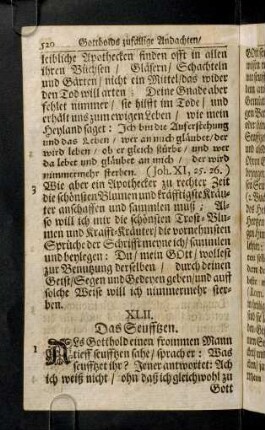 520 Gottholds zufällige Andachten/
leibliche Apothecken finden offt in allen
ihren Büchsen / Gläsern/ Schachteln
und Gärten/ nicht ein Mittel/das wider
den Tod will arten : Deine Gnade aber
fehlet nimmer/ sie hilfft im Tode/ und
erhält uns zum ewigen Leben/ wie mein
Heyland saget: Ich bin die Aufferstehung
und das Leben/ wer an mich gläubet/der
wird leben/ ob er gleich stürbe/ und wer
da lebet und gläubet an mich / der wird
nimmermehr sterben. (Joh. XI, 25. 26.)
3 Wie aber ein Apothecker zu rechter Zeit
die schönsten Blumen und kräfftigste Kräu-
ter anschaffen und samlen muß; Al-
so will ich mir die schönsten Trost-Blu-
men und Krafft-Kräuter/ die vornehmsten
Sprüche der Schrifft/ samlen
und beylegen: Du/ mein GOtt/ wollest
zur Benutzung derselben / durch deinen
Geist/Segen und Gedeyen geben/und auff
solche Weise will ich nimmermehr ster-
ben.
XLII.
Das Seufftzen.
1 ALs Gotthold einen frommen Mann
tieff seufftzen sahe/ sprach er: Was
seufftzet ihr? Jener antwortet: Ach
ich weiß nicht/ ohn daß ich gleichwohl zu
Gott